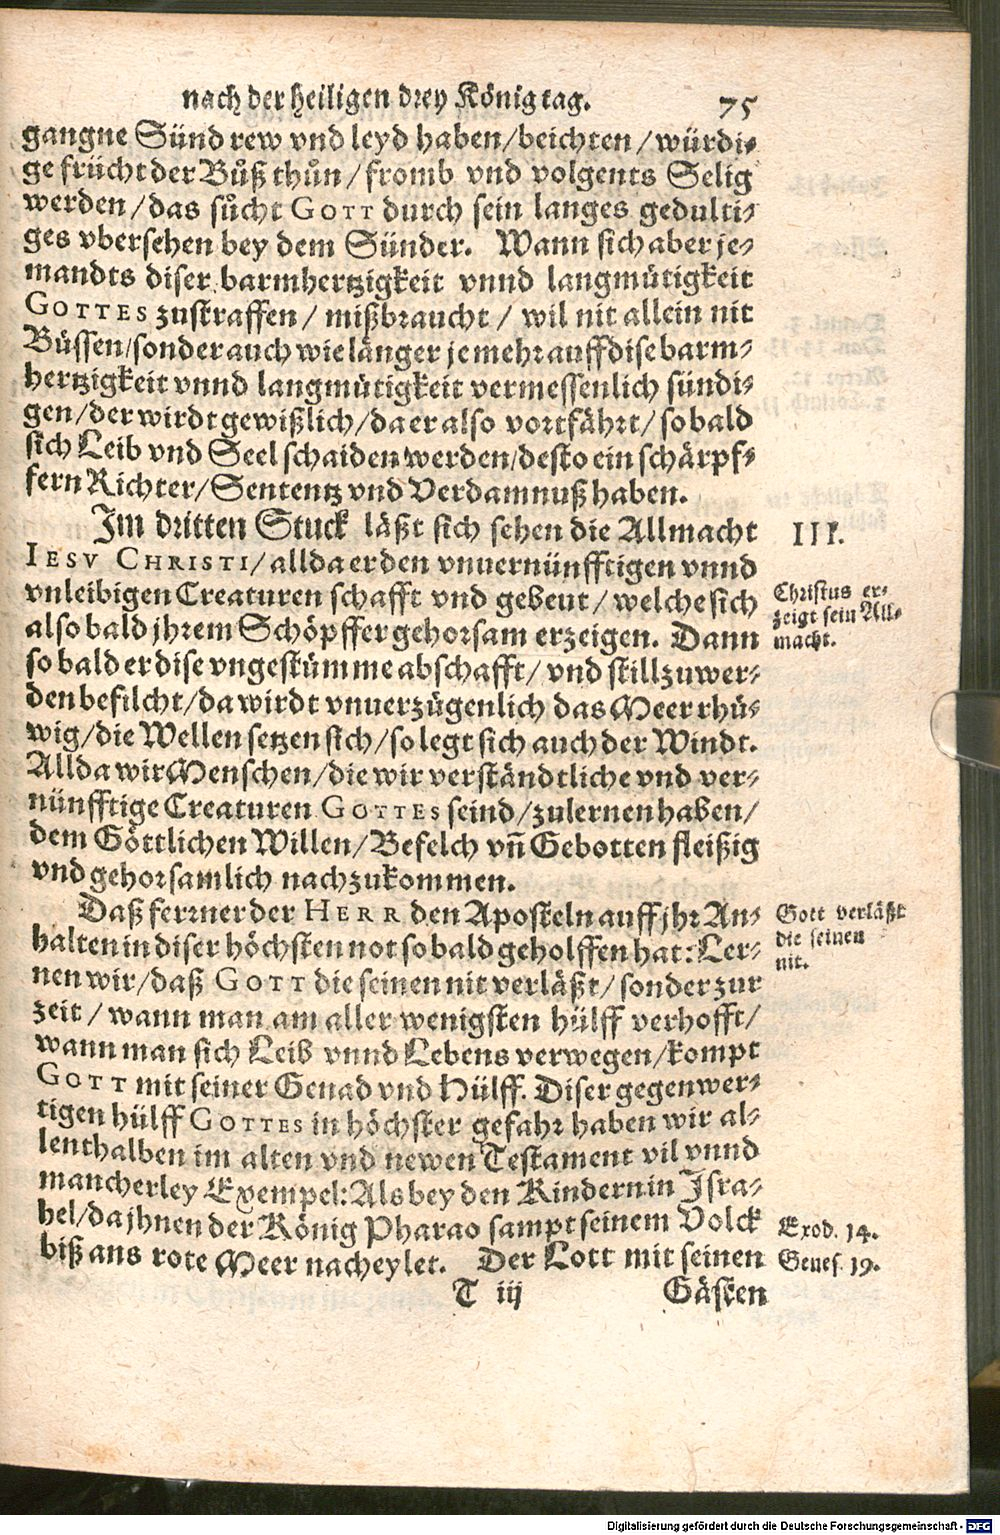 nach der heiligen drey Königtag. 75
gangne Sünd rew vnd leyd haben/beichten/würdi⸗
ge frücht der Bůß thůn/fromb vnd volgents Selig
werden/das sůcht GOTT durch sein langes gedulti⸗
ges vbersehen bey dem Sünder. Wann sich aber je⸗
mandts diser barmhertzigkeit vnnd langmütigkeit
GOTTES zustraffen/ mißbraucht/ wil nit allein nit
Büssen/sonder auch wie länger je mehr auff dise barm⸗
hertzigkeit vnnd langmütigkeit vermessenlich sündi⸗
gen/der wirdt gewißlich/da er also vortfährt/so bald
sich Leib vnd Seel schaiden werden/desto ein schärpf⸗
fern Richter/Sententz vnd Verdamnuß haben.
Im dritten Stuck läßt sich sehen die Allmacht
III.
IESV CHRISTI/allda er den vnuernünfftigen vnnd
vnleibigen Creaturen schafft vnd gebeut/welche sich
Christus er⸗
zeigt sein All⸗
macht.
also bald jhrem Schöpffer gehorsam erzeigen. Dann
so bald er dise vngestümme abschafft/vnd still zu wer⸗
den befilcht/da wirdt vnuerzügenlich das Meer rhü⸗
wig/die Wellen setzen sich/so legt sich auch der Windt.
Allda wir Menschen/die wir verständtliche vnd ver⸗
nünfftige Creaturen GOTTES seind/zulernen haben/
dem Göttlichen Willen/Befelch vñ Gebotten fleißig
vnd gehorsamlich nachzukommen.
Daß ferrner der HERR den Aposteln auff jhr An⸗
Gott verläßt
die seinen
nit.
halten in diser höchsten not so bald geholffen hat: Ler⸗
nen wir/daß GOTT die seinen nit verläßt/sonder zur
zeit/wann man am aller wenigsten hülff verhofft/
wann man sich Leib vnnd Lebens verwegen/kompt
GOTT mit seiner Genad vnd Hülff. Diser gegenwer⸗
tigen hülff GOTTES in höchster gefahr haben wir al⸗
lenthalben im alten vnd newen Testament vil vnnd
mancherley Exempel: Als bey den Kindern in Isra⸗
hel/da jhnen der König Pharao sampt seinem Volck
Exod. 14.
biß ans rote Meer nacheylet. Der Lott mit seinen
Genes. 19.
T iij Gästen
Digitalisierung gefördert durch die Deutsche Forschungsgemeinschaft - DFG